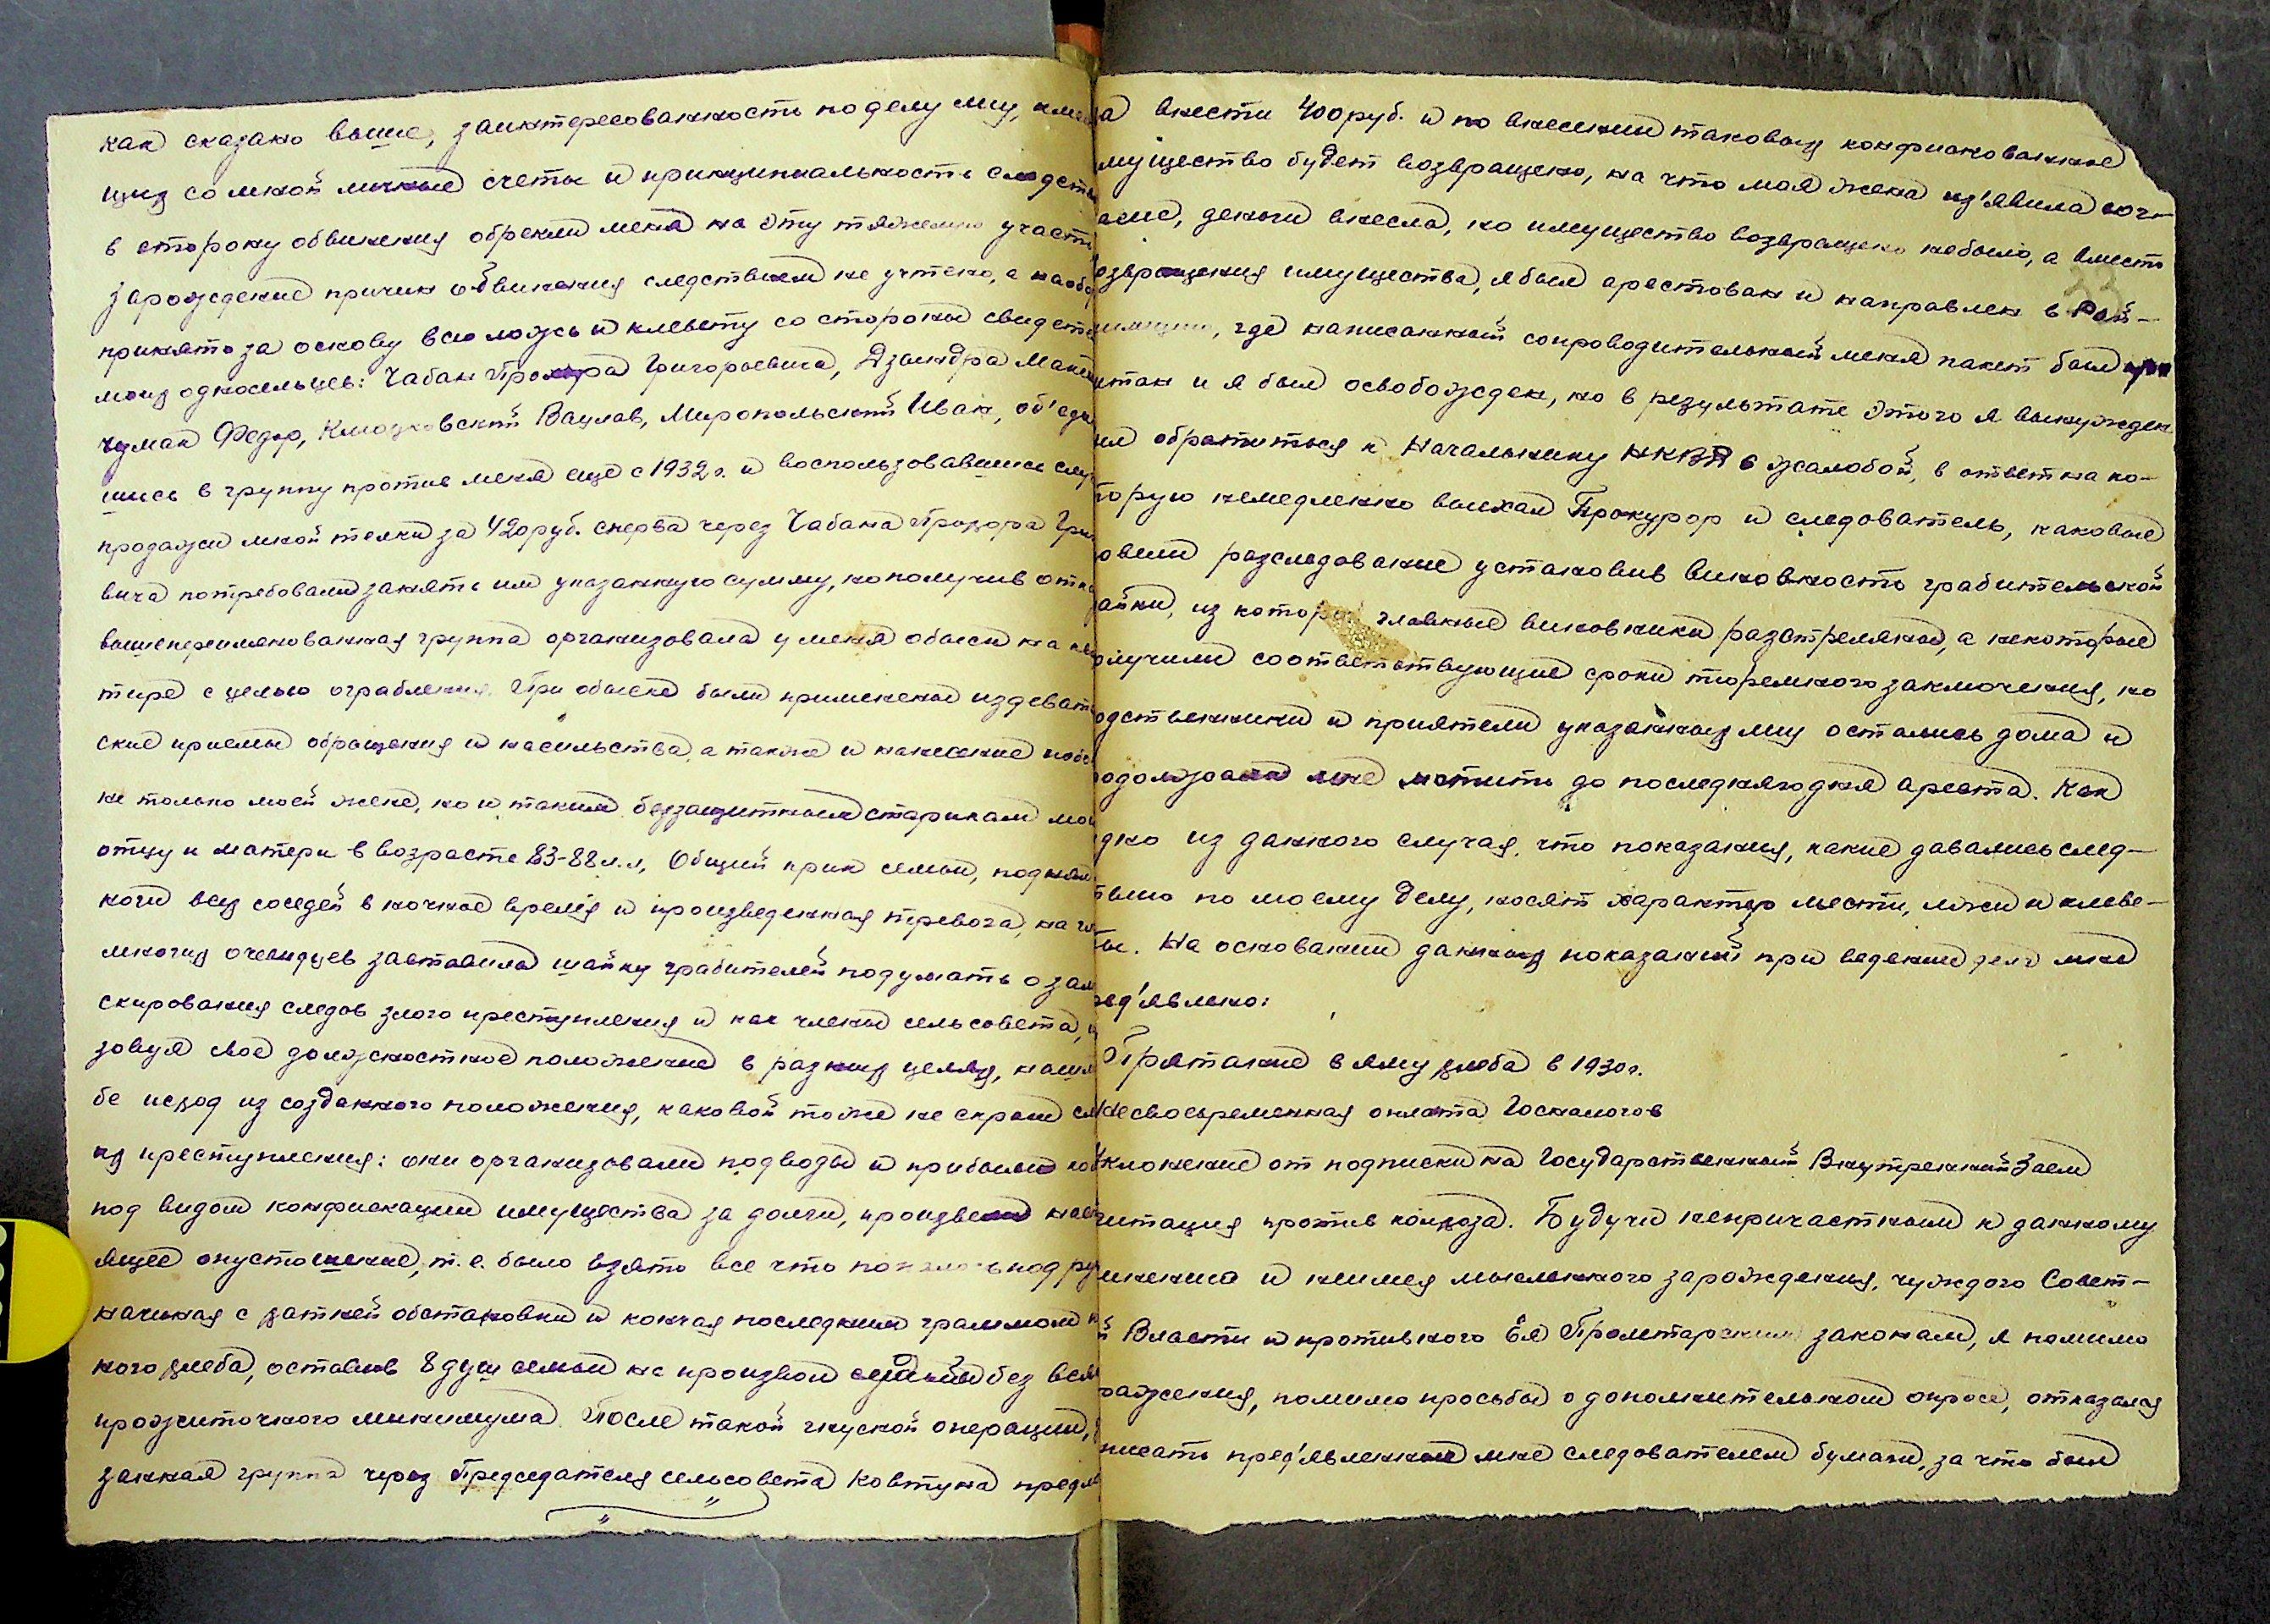 как сказано выше, заинтересованность по делу лиц, имею
щих со мной личные счеты и принципиальность следств
в сторону обвинения обрекли меня на эту тяжелую участь
Зарождение причин обвинения следствием не учтено, а наобо
принято за основу всю ложь и клевету со стороны свидете
моих односельцев: Чабан Прохора Григорьевича, Дзындра Макс
чуман Федор, Клюзковский Вацлав, Миропольский Иван, об'еди
шись в группу против меня еще с 1932 г. и воспользовавшись слу
продажи мной телки за 420 руб. сперва через Чабана Прохора Гри
вича потребовали занять им указанную сумму, но получив отка
вышепереименованная группа организовала у меня обыск на ква
тире с целью ограбления. При обыске были применены издеват
ские приемы обращения и насильства, а также и нанесение побо
не только моей жене, но и таким беззащитным старикам мои
отцу и матери в возрасте 83-88 л.л. Общий крик семьи, поднял
ноги всех соседей в ночное время и произведенная тревога, на гл
многих очевидцев заставила шайку грабителей подумать о зам
скировании следов злого преступления и как члены сельсовета, и
зовуя свое должностное положение в разных целях, нашл
бе исход из созданного положения, каковой тоже не скрыл сл
их преступления: они организовали подводы и прибыли ко
под видом конфискации имущества за долги, произвели наст
ящее опустошение, т.е. было взято все что попалось под ру
начиная с хатней обстановки и кончая последним граммом п
ного хлеба, оставив 8 душ семьи на произвол судьбы без вся
прожиточного минимума. После такой гнусной операции,
занная группа через Председателя сельсовета Ковтуна предл
а внести 400 руб. и по внесении таковых конфискованное
мущество будет возвращено, на что моя жена из'явила сог-
асие, деньги внесла, но имущество возвращено небыло, а вместо
озвращения имущества, я был арестован и направлен в Рай-
милицию, где написанный сопроводительный меня пакет был про
читан и я был освобожден, но в результате этого я вынужден
ыл обратиться к Начальнику НКВД с жалобой, в ответ на ко-
торую немедленно выехал Прокурор и следователь, каковые
овели разследование установив виновность грабительской
айки, из котор главные виновники разстреляны, а некоторые
олучили соответствующие сроки тюремного заключения, но
одственники и приятели указанных лиц остались дома и
родолжали мне мстить до последнягодня ареста. Как
дно из данного случая, что показания, какие давались след-
твию по моему делу, носят характер мести, лжи и клеве-
ты. На основании данных показаний при ведении дела мне
ред'явлено:
Прятание в яму хлеба в 1930 г.
Несвоевременная оплата Госналогов
Уклонение от подписки на Государственный Внутренний Заем
гитация против колхоза. Будучи непричастным к данному
инению и неимея мысленного зарождения, чуждого Совет-
й Власти и противного Её Пролтарским законам, я помимо
ражения, помимо просьбы о дополнительном опросе, отказался
писать пред'явленные мне следователем бумаги, за что был